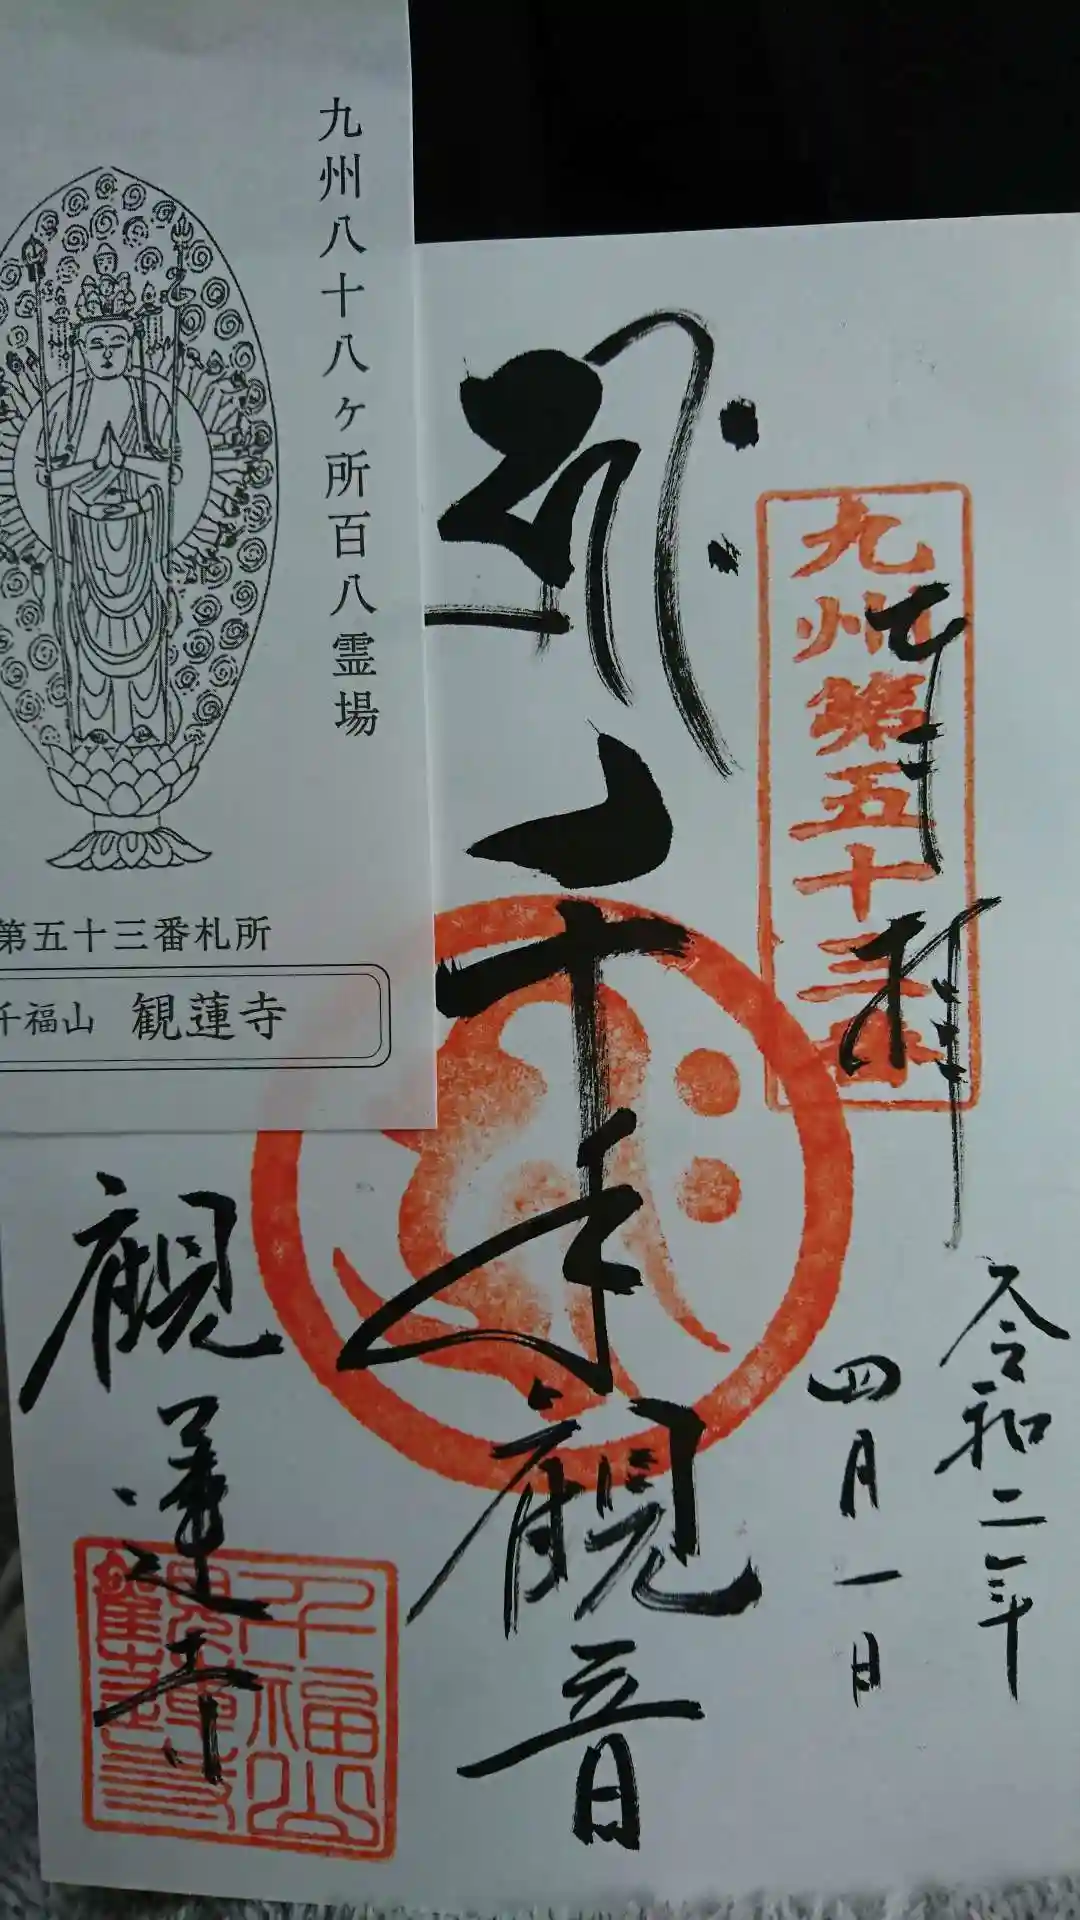 九州八十八ヶ所百八霊場
第五十三番札所
千福山 観蓮寺
九州第五十三番
奉拝
令和二年
四月一日
千手観音
観蓮寺
千福山
観蓮寺